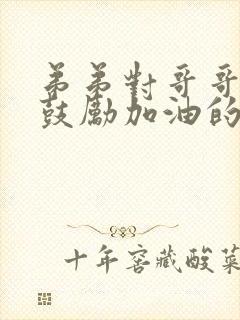 弟弟對哥哥
鼓勵加油的
十年窖藏酸菜